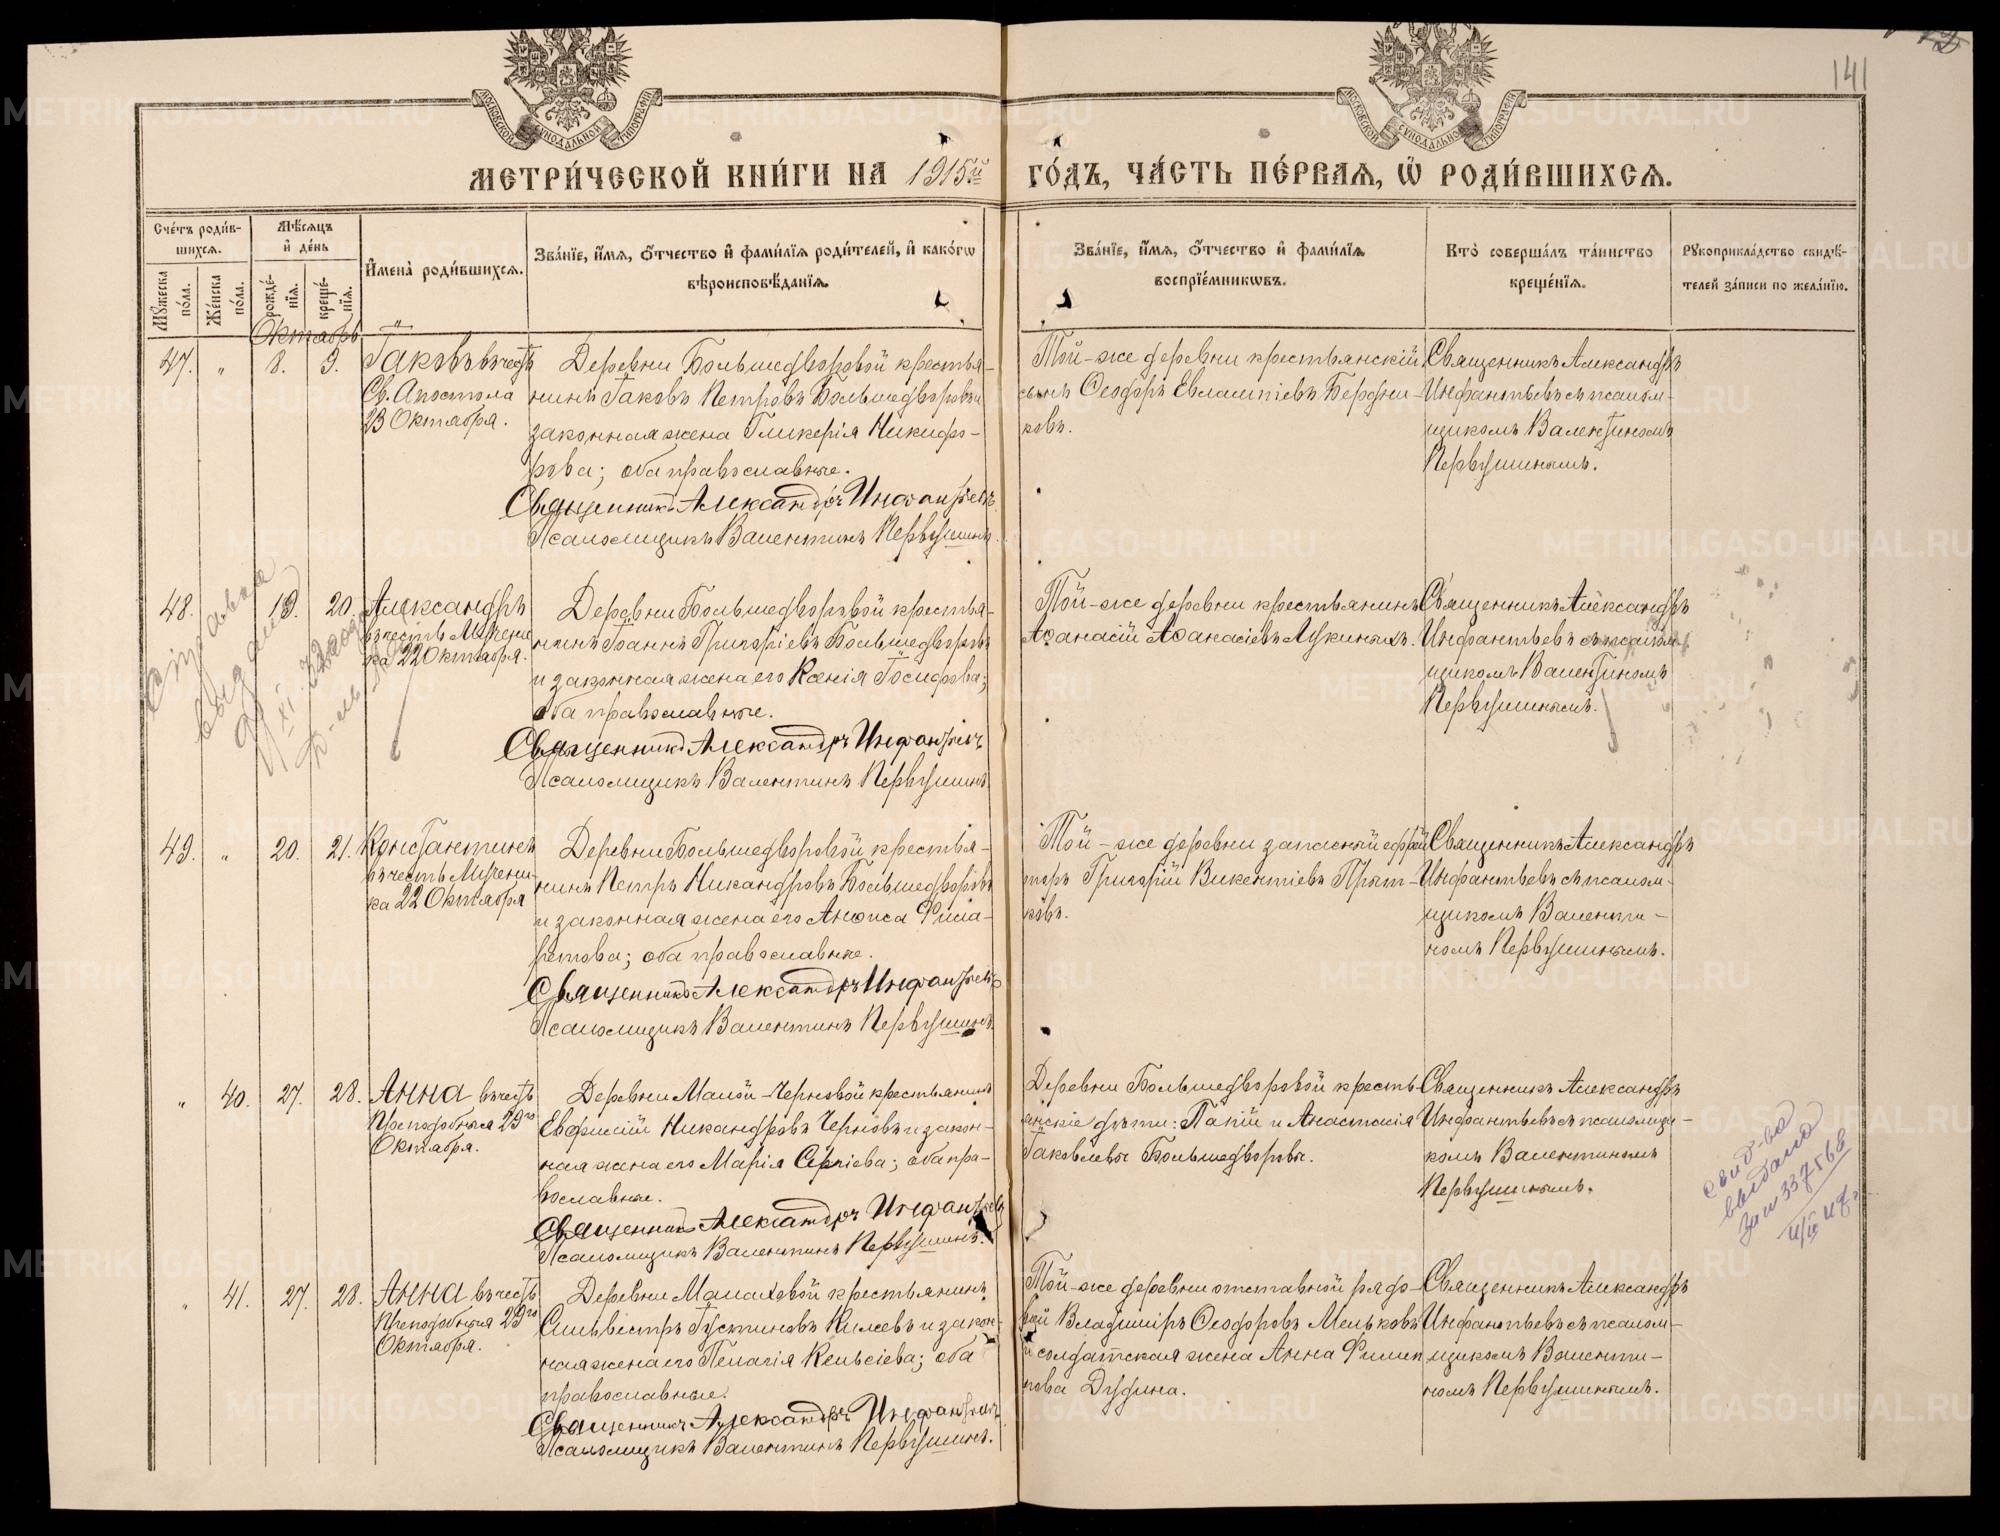 141
МОСКОВСКОЙ СѴНОДАЛЬНОЙ ТИПОГРАФІИ
МОСКОВСКОЙ СѴНОДАЛЬНОЙ ТИПОГРАФІИ
МЕТРИ́ЧЕСКОЙ КНИ́ГИ НА 1915й ГО́ДЪ, ЧА́СТЬ ПЕ́РВАѦ, Ѡ҆ РОДИ́ВШИХСѦ.
Сче́тъ роди́в-
шихсѧ.
Мѣ́сѧцъ
и҆ де́нь
Мꙋжеска по́ла.
Же́нска по́ла.
рожде́-нїѧ.
креще́-нїѧ.
И҆мена̀ роди́вшихсѧ.
Зва́нїе, и҆́мѧ, ѻ҆́тчество и҆ фами́лїѧ роди́телей, и҆ како́гѡ
вѣроисповѣ́данїѧ.
Зва́нїе, и҆́мѧ, ѻ҆́тчество и҆ фами́лїѧ
воспрїе́мникѡвъ.
Кто̀ соверша́лъ та́инство
креще́нїѧ.
Рꙋкоприкла́дство свидѣ́-
телей за́писи по жела́нїю.
Октябрь
47. " 8. 9.
Іаковъ въ честь
Св. Апостола
23 Октября.
Деревни Большедворовой крестья-
нинъ Іаковъ Петровъ Большедворовъ и
законная жена Гликерія Никифо-
рова; оба православные.
Священникъ Александръ Инфантьевъ
Псаломщикъ Валентинъ Первушинъ.
Той-же деревни крестьянскій
сынъ Ѳеодоръ Евлампіевъ Бердни-
ковъ.
Священникъ Александръ
Инфантьевъ съ псалом-
щикомъ Валентиномъ
Первушинымъ.
48. 19. 20.
Александръ
въ честь Мучени
ка 22 Октября.
Деревни Большедворовой крестья-
нинъ Іоаннъ Григоріевъ Большедворовъ
и законная жена его Ксенія Іосифова;
оба православные.
Священникъ Александръ Инфантьевъ
Псаломщикъ Валентинъ Первушинъ
Той-же деревни крестьянинъ
Аѳанасій Аѳанасіевъ Мукиныхъ.
Священникъ Александръ
Инфантьевъ съ псалом-
щикомъ Валентиномъ
Первушинымъ.
справка
выдана
49. " 20. 21.
Константинъ
въ честь Мучени-
ка 22 Октября
Деревни Большедворовой крестья-
нинъ Петръ Никандровъ Большедворовъ
и законная жена его Анѳиса Фила-
ретова; оба православные.
Священникъ Александръ Инфантьевъ
Псаломщикъ Валентинъ Первушинъ.
Той-же деревни запасный ефрей
торъ Григорій Викентіевъ Прят-
ковъ.
Священникъ Александръ
Инфантьевъ съ псалом-
щикомъ Валенти-
номъ Первушинымъ.
" 40. 27. 28.
Анна въ честь
Преподобныя 29го
Октября.
Деревни Малой-Черновой крестьянинъ
Евфисій Никандровъ Черновъ и закон-
ная жена его Марія Сергіева; оба пра-
вославные.
Священникъ Александръ Инфантьевъ
Псаломщикъ Валентинъ Первушинъ.
Деревни Большедворовой кресть-
янскіе дѣти: Паисій и Анастасія
Іаковлевы Большедворовы.
Священникъ Александръ
Инфантьевъ съ псаломщи-
комъ Валентиномъ
Первушинымъ.
свид-во
выдано
" 41. 27. 28.
Анна въ честь
Преподобныя 29го
Октября.
Деревни Малаховой крестьянинъ
Сильвестръ Іустиновъ Килевъ и закон-
ная жена его Пелагія Кельсіева; оба
православные.
Священникъ Александръ Инфантьевъ
Псаломщикъ Валентинъ Первушинъ.
Той-же деревни отставной рядо-
вой Владиміръ Ѳеодоровъ Мельковъ
и солдатская жена Анна Филип
пова Дудина.
Священникъ Александръ
Инфантьевъ съ псалом-
щикомъ Валенти-
номъ Первушинымъ.
METRIKI.GASO-URAL.RU